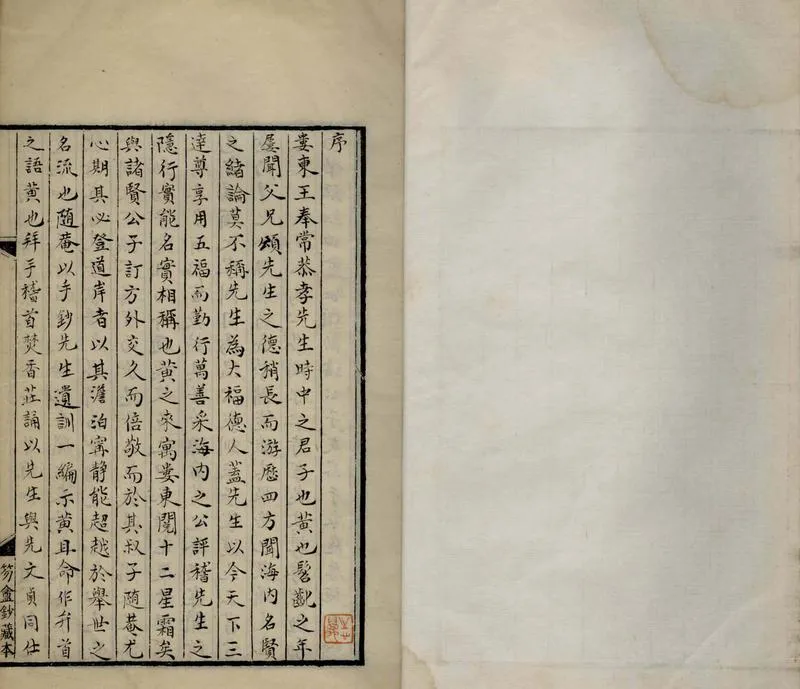 序
婁東王奉常恭孝先生時中之君子也黄也髫齔之年
屡聞父兄頌先生之德稍長而游歷四方聞海内名賢
之緒論莫不稱先生為大福德人蓋先生以今天下三
達尊享用五福而勤行萬善采海内之公評稽先生之
隱行實能名實相稱也黄之來寓婁東閱十二星霜矣
與諸賢公子訂方外交久而倍敬而於其叔子隨菴尤
心期其必登道岸者以其澹泊寗静能超越於舉世之
名流也隨菴以手鈔先生遺訓一編示黄且命作弁首
之語黄也拜手稽首焚香莊誦以先生與先文貞同仕
笏盦鈔藏本